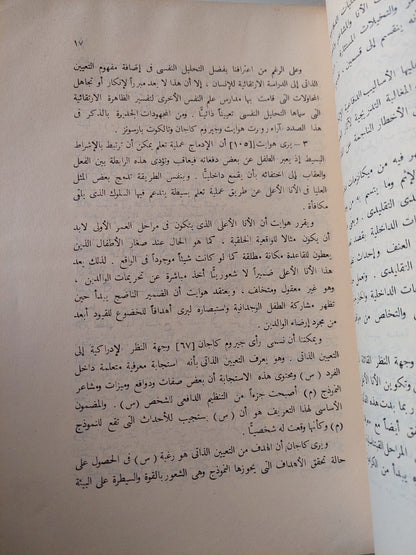 ١٧
وعلى الرغم من اعترافنا بفضل التحليل النفسى فى إضافة مفهوم التعيين
الذاتى إلى الدراسة الارتقائية للإنسان ، إلا أن هذا لا يعد مبرراً لإنكار أو تجاهل
المحاولات التى قامت بها مدارس علم النفس الأخرى لتفسير الظاهرة الارتقائية
التى سماها التحليل النفسى تعييناً ذاتياً . ومن المجهودات الجديرة بالذكر فى
هذا الصدد آراء روبرت هوايت وجيروم كاجان وتالكوت بارسونز .
٣ — يرى هوايت [١٠٥] أن الإدماج عملية تعلم يمكن أن ترتبط بالإشراط
البسيط إذ يعبر الطفل عن بعض دفعاته فيعاقب وتؤدى هذه الرابطة بين الفعل
والعقاب إلى اختفائه بأن يقمع داخلياً . وبنفس الطريقة تدمج بعض المثل
العليا فى الأنا الأعلى عن طريق عملية تعلم بسيطة يتدعم فيها السلوك الذى يلقى
مكافأة .
ويقرر هوايت أن الأنا الأعلى الذى يتكون فى مراحل العمر الأولى لابد
أن يكون مثالا للواقعية الخلقية ، كما هو الحال عند صغار الأطفال الذين
يعطون للقاعدة مكانة مطلقة كما لو كانت شيئاً موجوداً فى الواقع . لذلك يعد
هذا الأنا الأعلى ضميراً لا شعورياً أخذ مباشرة عن تحريمات الوالدين ،
وهو غير معقول ومتخلف ، ويعتقد هوايت أن الضمير الناضج يبدأ حين
تظهر مشاركة الطفل الوجدانية واستبصاره ليرى أهدافاً للخضوع للقيود أبعد
من مجرد إرضاء الوالدين .
ويمكننا أن نسمى رأى جيروم كاجان [٦٧] وجهة النظر الإدراكية إلى
التعيين الذاتى . فهو يعرف التعيين الذاتى بأنه استجابة معرفية متعلمة داخل
الفرد (س) ومحتوى هذه الاستجابة أن بعض صفات ودوافع وميزات ومشاعر
النموذج (م) أصبحت جزءاً من التنظيم الدافعى للشخص (س) . والمضمون
الأساسى لهذا التعريف هو أن (س) سيستجيب للأحداث التى تقع للنموذج
(م) وكأنها وقعت له شخصياً .
ويرى كاجان أن الهدف من التعيين الذاتى هو رغبة (س) فى الحصول على
حالة تحقق الأهداف التى يحوزها النموذج وهى الشعور بالقوة والسيطرة على البيئة